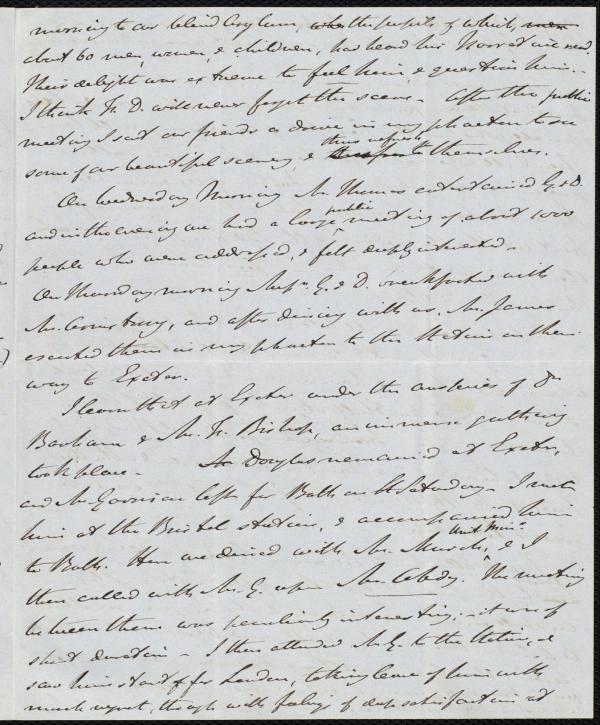 morning to our blind Asylum, where the pupils of which, men
about 60 men, women, & children, had heard his Narrative read.
Their delight was extreme to feel him, & question him. -
I think F. D. will never forget the scene - After the public
meeting I sent our friends a drive in my phaeton to see
some of our beautiful scenery, & thus refresh themselves.
On Wednesday Morning Mr Thomas entertained G. & D.
and in the evening we had a large public meeting of about 1000
people who were addressed, & felt deeply interested -
On Thursday morning Messrs. G. & D. breakfasted with
Mr. Armstrong, and after dining with us, Mr. James
escorted them in my phaeton to the Station on their
way to Exeter.
I learn that at Exeter under the auspices of Dr
Barham & Mr. Fr. Bishop, an immense gathering
took place - Douglas remained at Exeter,
and Mr Garrison left for Bath on Saturday - I met
him at the Bristol station, & accompanied him
to Bath. Here we dined with Mr. Murch, Unit. Minr. & I
then called with Mr. G. upon The meeting
between them was peculiarly interesting; - it was of
short duration - I then attended Mr G. to the station, &
saw him start off for London, taking leave of him with
much regret, though with feelings of deep satisfaction at